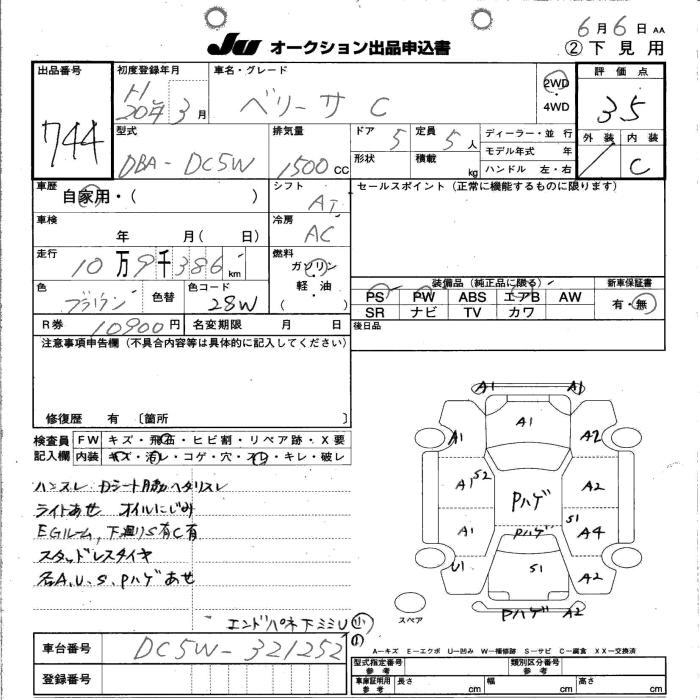 6月6日 AA
JU オークション出品申込書
② 下見用
出品番号
744
初度登録年月
H
20年3月
車名・グレード
ベリーサ C
2WD
・
4WD
評価点
3.5
外装 内装
C
型式
DBA-DC5W
排気量
1500 CC
ドア 5
定員 5人
形状
積載 kg
ディーラー・並行
モデル年式 年
ハンドル 左・右
車歴
自家用・( )
シフト
AT
セールスポイント(正常に機能するものに限ります)
車検
年 月( 日)
冷房
AC
走行
10万9千386km
燃料
ガソリン
軽油
( )
色
ブラウン
色替
色コード
28W
装備品(純正品に限る)
PS PW ABS エアB AW
SR ナビ TV カワ
新車保証書
有・無
R券 10900円
名変期限 月 日
後日品
注意事項申告欄(不具合内容等は具体的に記入してください)
修復歴 有 〔箇所 〕
検査員
記入欄
FW キズ・飛石・ヒビ割・リペア跡・X要
内装 キズ・汚レ・コゲ・穴・スレ・キレ・破レ
ハンスレ Dシート
ヘタリスレ
ライトあせ オイルにじみ
EGルーム,下廻りS有C有
スタッドレスタイヤ
各A.U.S.Pハゲあせ
エンドパネ下ミミU
A1 A1
A1
A1 A2
A1 S2 Pハゲ A2
A1 Pハゲ S1 A4
U1 S1 A2
Pハゲ A2
スペア
車台番号
DC5W-321252
登録番号
A-キズ E-エクボ U-凹み W-補修跡 S-サビ C-腐食 XX-交換済
型式指定番号
参考
類別区分番号
参考
車庫証明用
参考
長さ cm
幅 cm
高さ cm